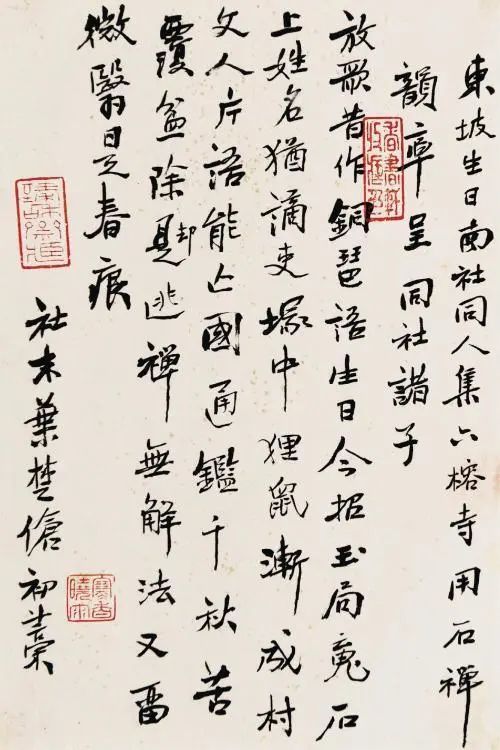 東坡生日南社同人集六榕寺用石禪
韻率呈同社諸子
放歌昔作銅琶語生日今招玉局魂石
上姓名猶謫吏塚中狸鼠漸成村
文人片語能亡國通鑑千秋苦
覆盆除卻逃禪無解法又留
微翳是春痕
社末葉楚傖初稾